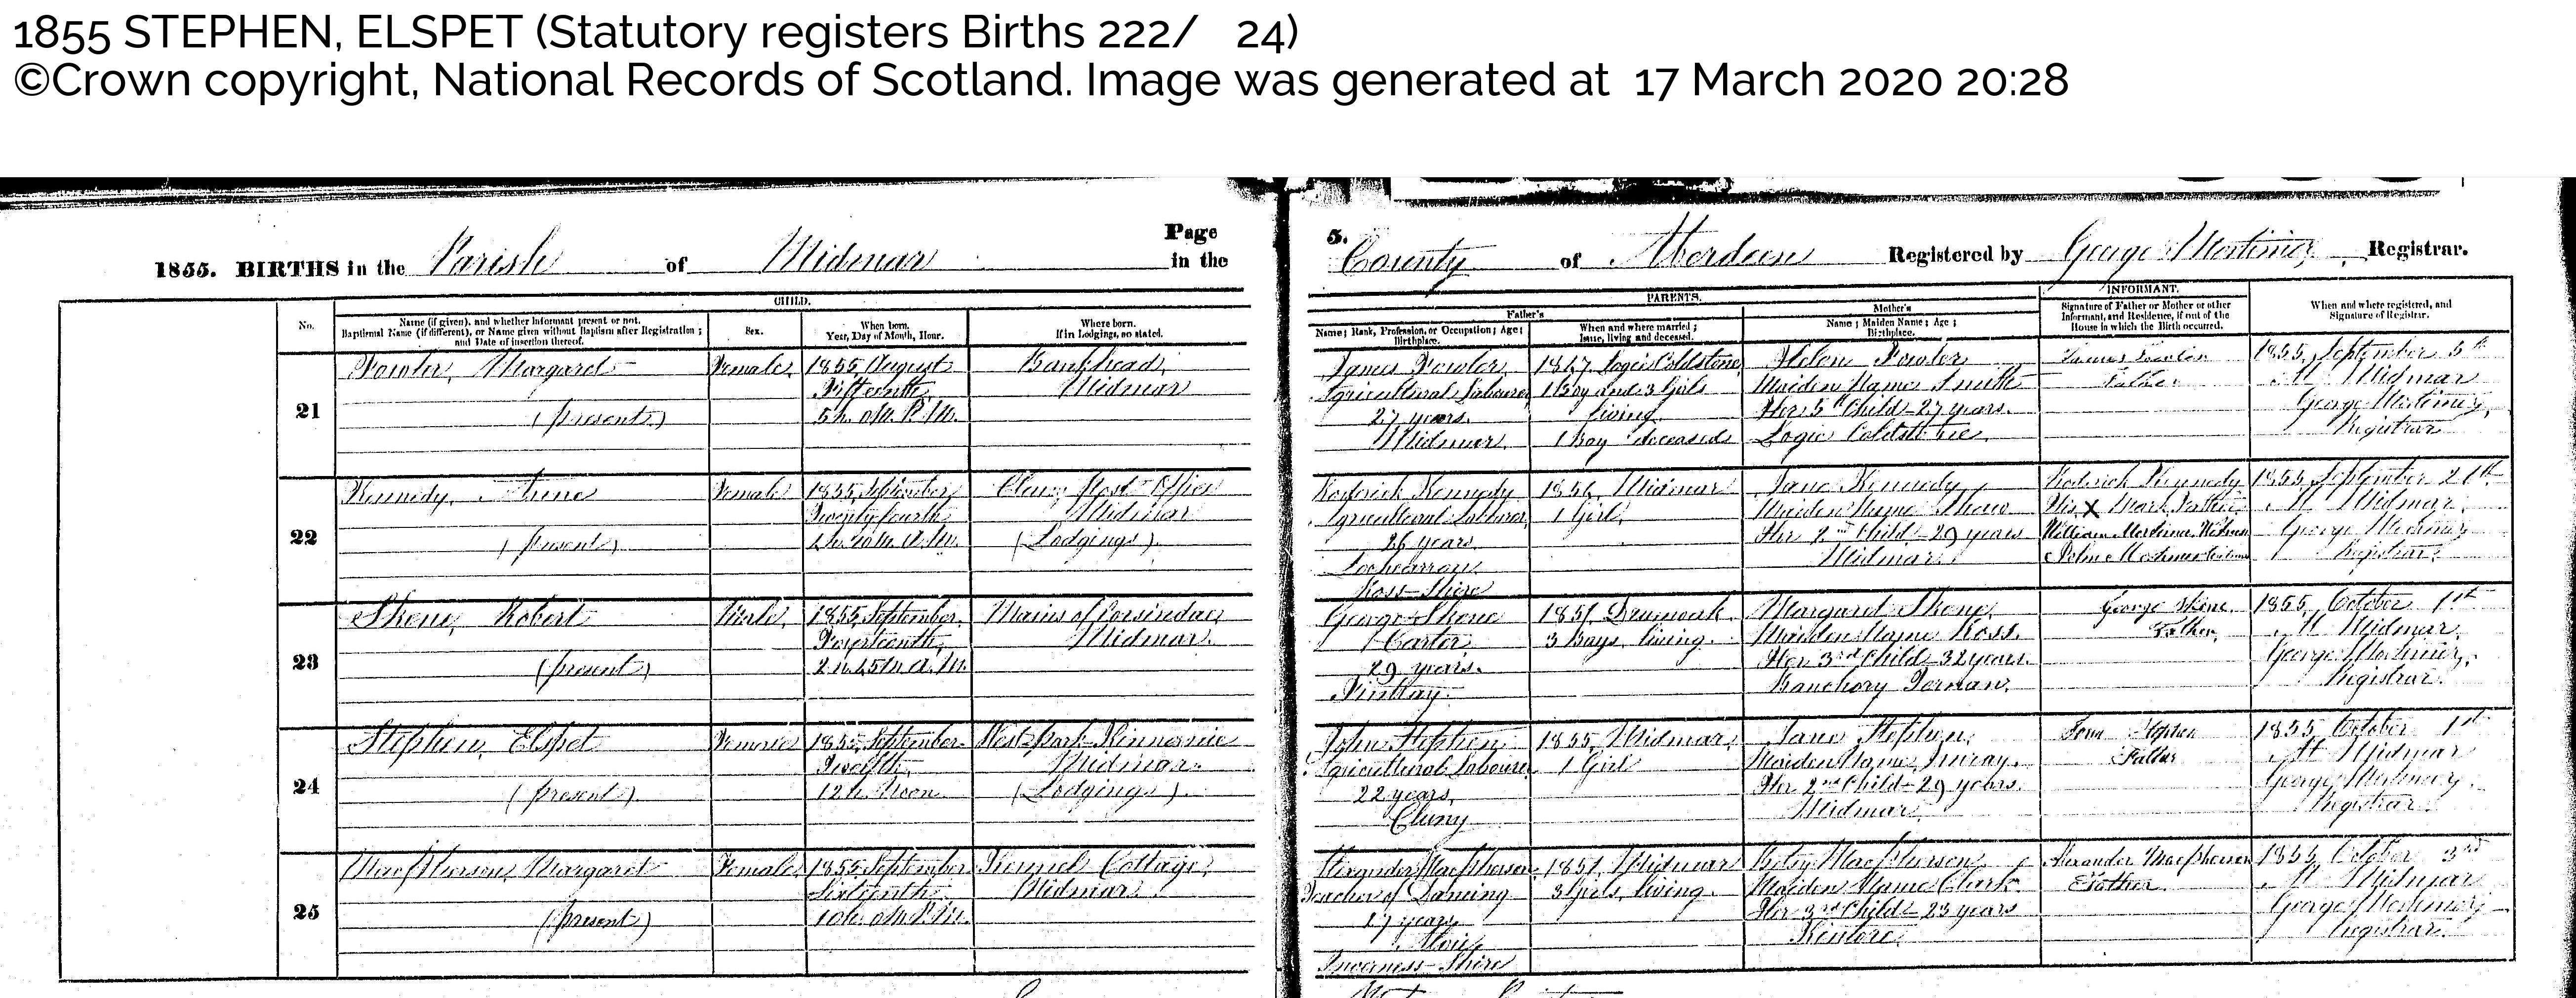 1855 STEPHEN, ELSPET (Statutory registers Births 222/ 24)
©Crown copyright, National Records of Scotland. Image was generated at 17 March 2020 20:28
Page 5.
1855. BIRTHS in the Parish of Midmar in the County of Aberdeen Registered by George Mortimer, Registrar.
CHILD.
PARENTS.
INFORMANT.
No.
Name (if given), and whether Informant present or not.
Baptismal Name (if different), or Name given without Baptism after Registration;
and Date of insertion thereof.
Sex.
When born.
Year, Day of Month, Hour.
Where born.
If in Lodgings, so stated.
Father's
Name; Rank, Profession, or Occupation; Age;
Birthplace.
When and where married;
Issue, living and deceased.
Mother's
Name; Maiden Name; Age;
Birthplace.
Signature of Father or Mother or other
Informant, and Residence, if out of the
House in which the Birth occurred.
When and where registered, and
Signature of Registrar.
21
Fowler, Margaret
(present)
Female
1855, August
Fifteenth
5h. 0m. P.M.
Bankhead,
Midmar
James Fowler,
Agricultural Labourer
27 years.
Midmar.
1847, Logie Coldstone
1 Boy and 3 Girls
living
1 Boy deceased
Helen Fowler
Maiden Name Smith
Her 5th Child - 27 years.
Logie Coldstone
James Fowler
Father
1855, September 5th
At Midmar
George Mortimer,
Registrar
22
Kennedy,
(present)
Female
1855, September
Twenty fourth
Post Office
Midmar
(Lodgings)
Roderick Kennedy
Agricultural Labourer
26 years
Lochcarron
Ross-Shire
Midmar
1 Girl,
Jane Kennedy,
Maiden Name
Her 2nd Child - 29 years
Midmar.
Roderick Kennedy
His X Mark, Father
William Mortimer, Witness
Mortimer Witness
1855, September
At Midmar,
George Mortimer
Registrar.
23
Skene, Robert
(present)
Male,
1855, September
2h. 45m. A.M.
Mains of Corsindae,
Midmar.
George Skene
Carter
29 years.
Fintray.
1851, Drumoak
3 Boys, living.
Margaret Skene,
Maiden Name Ross.
Her 3rd Child - 32 years.
Banchory Ternan.
George Skene
Father
1855, October 1st
At Midmar,
George Mortimer,
Registrar.
24
Stephen, Elspet
(present)
Female
1855, September
Twelfth,
12h. Noon
Midmar.
(Lodgings).
John Stephen
Agricultural Labourer
22 years,
Cluny
1855, Midmar,
1 Girl
Jane Stephen,
Maiden Name
Her 2nd Child - 29 years.
Midmar
John Stephen
Father
1855, October 1st
At Midmar
George Mortimer,
Registrar
25
MacPherson, Margaret
(present)
Female
1855, September
Sixteenth
10h. 0m. P.M.
Kennel Cottage,
Midmar.
Alexander MacPherson
Teacher of Dancing
Inverness-Shire
1851, Midmar
3 Girls, living.
Betsy MacPherson,
Maiden Name Clark
Her 3rd Child - 23 years
Kintore.
Alexander Macpherson
Father
1855, October 3rd
At Midmar
George Mortimer,
Registrar.